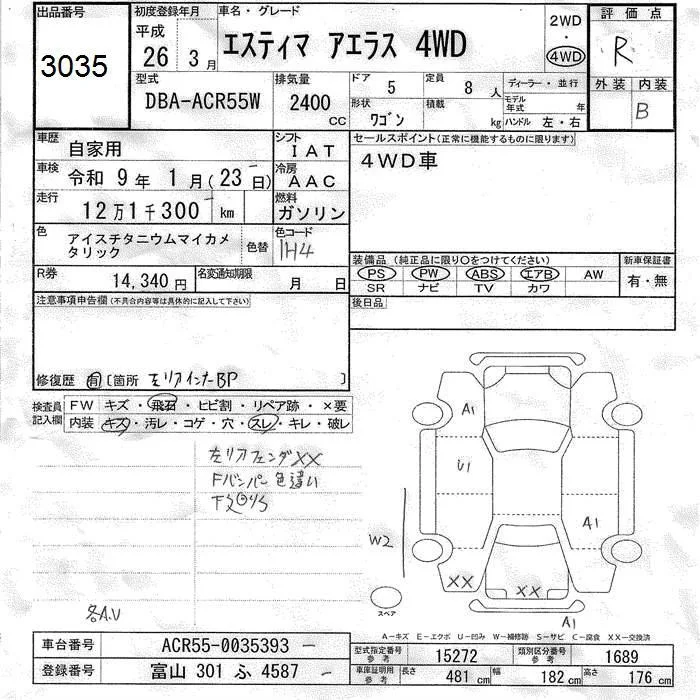 出品番号
3035
初度登録年月
平成
26 3月
車名・グレード
エスティマ アエラス 4WD
2WD
・
4WD
評価点
R
外装 内装
B
型式
DBA-ACR55W
排気量
2400
CC
ドア 5
定員 8 人
形状 ワゴン
積載 kg
ディーラー・並行
モデル年式 年
ハンドル 左・右
車歴 自家用
シフト IAT
車検 令和 9年 1月(23日)
冷房 AAC
走行 12万1千300 km
燃料 ガソリン
色 アイスチタニウムマイカメタリック
色替
色コード 1H4
R券 14,340円
名変通知期限 月 日
セールスポイント(正常に機能するものに限ります)
4WD車
装備品(純正品に限り○をつけてください)
PS PW ABS エアB AW
SR ナビ TV カワ
新車保証書
有・無
後日品
注意事項申告欄(不具合内容等は具体的に記入して下さい)
修復歴 有 〔箇所 左リアインナーBP 〕
検査員記入欄
FW キズ・飛石・ヒビ割・リペア跡・×要
内装 キズ・汚レ・コゲ・穴・スレ・キレ・破レ
左リアフェンダXX
Fバンパー色違い
各A.U
A1
U1
A1
W2
XX
XX
スペア
A1
A-キズ E-エクボ U-凹み W-補修跡 S-サビ C-腐食 XX-交換済
車台番号 ACR55-0035393
登録番号 富山 301 ふ 4587
型式指定番号 参考 15272
類別区分番号 参考 1689
車庫証明用 参考 長さ 481cm 幅 182cm 高さ 176cm